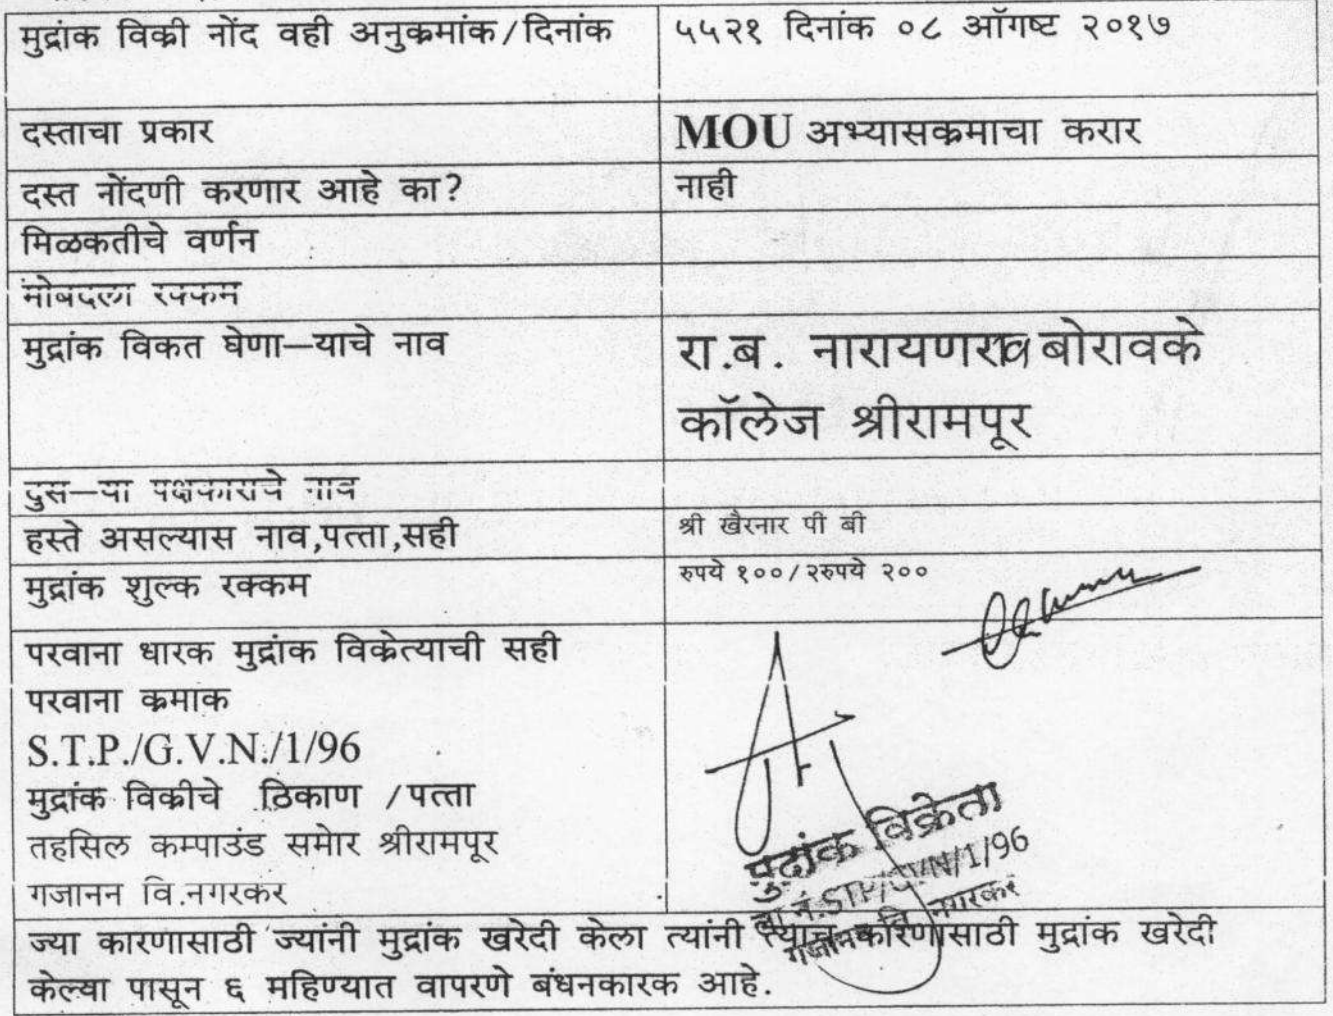 मुद्रांक विक्री नोंद वही अनुक्रमांक/दिनांक
५५२१ दिनांक ०८ ऑगष्ट २०१७
दस्ताचा प्रकार
MOU अभ्यासक्रमाचा करार
दस्त नोंदणी करणार आहे का?
नाही
मिळकतीचे वर्णन
मोबदला रक्कम
मुद्रांक विकत घेणा–याचे नाव
रा.ब. नारायणराव बोरावके
कॉलेज श्रीरामपूर
दुस–या पक्षकाराचे नाव
हस्ते असल्यास नाव,पत्ता,सही
श्री खैरनार पी बी
मुद्रांक शुल्क रक्कम
रुपये १००/२रुपये २००
परवाना धारक मुद्रांक विक्रेत्याची सही
परवाना क्रमाक
S.T.P./G.V.N./1/96
मुद्रांक विक्रीचे ठिकाण /पत्ता
तहसिल कम्पाउंड समोर श्रीरामपूर
गजानन वि.नगरकर
मुद्रांक विक्रेता
ला.नं.STP/GVN/1/96
गजानन वि. नगरकर
ज्या कारणासाठी ज्यांनी मुद्रांक खरेदी केला त्यांनी त्याच कारणासाठी मुद्रांक खरेदी
केल्या पासून ६ महिण्यात वापरणे बंधनकारक आहे.